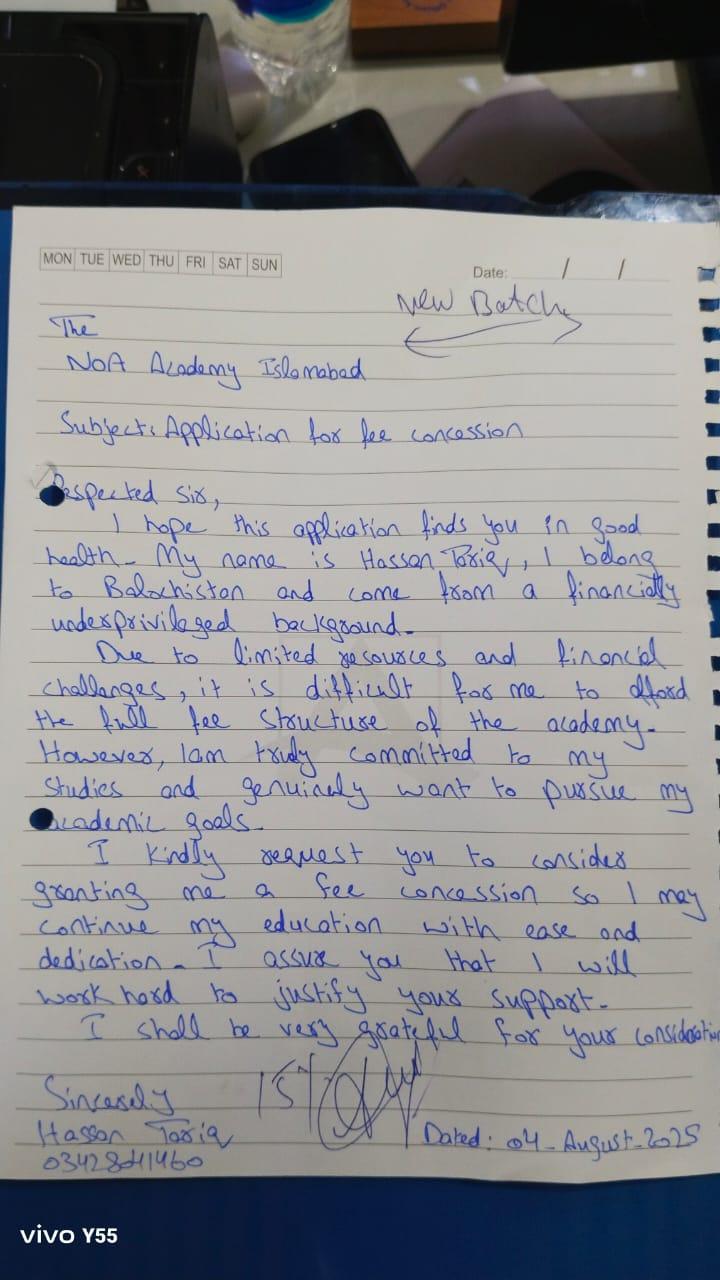 MON TUE WED THU FRI SAT SUN
Date: / /
New Batch
The
NOA Academy Islamabad
Subject: Application for fee concession
Respected Sir,
I hope this application finds you in good
health. My name is Hassan Tariq, I belong
to Balochistan and come from a financially
underprivileged background.
Due to limited resources and financial
challenges, it is difficult for me to afford
the full fee structure of the academy.
However, I am truly committed to my
studies and genuinely want to pursue my
academic goals.
I kindly request you to consider
granting me a fee concession so I may
continue my education with ease and
dedication. I assure you that I will
work hard to justify your support.
I shall be very grateful for your consideration
Sincerely
Hassan Tariq
Dated: 04-August-2025
vivo Y55